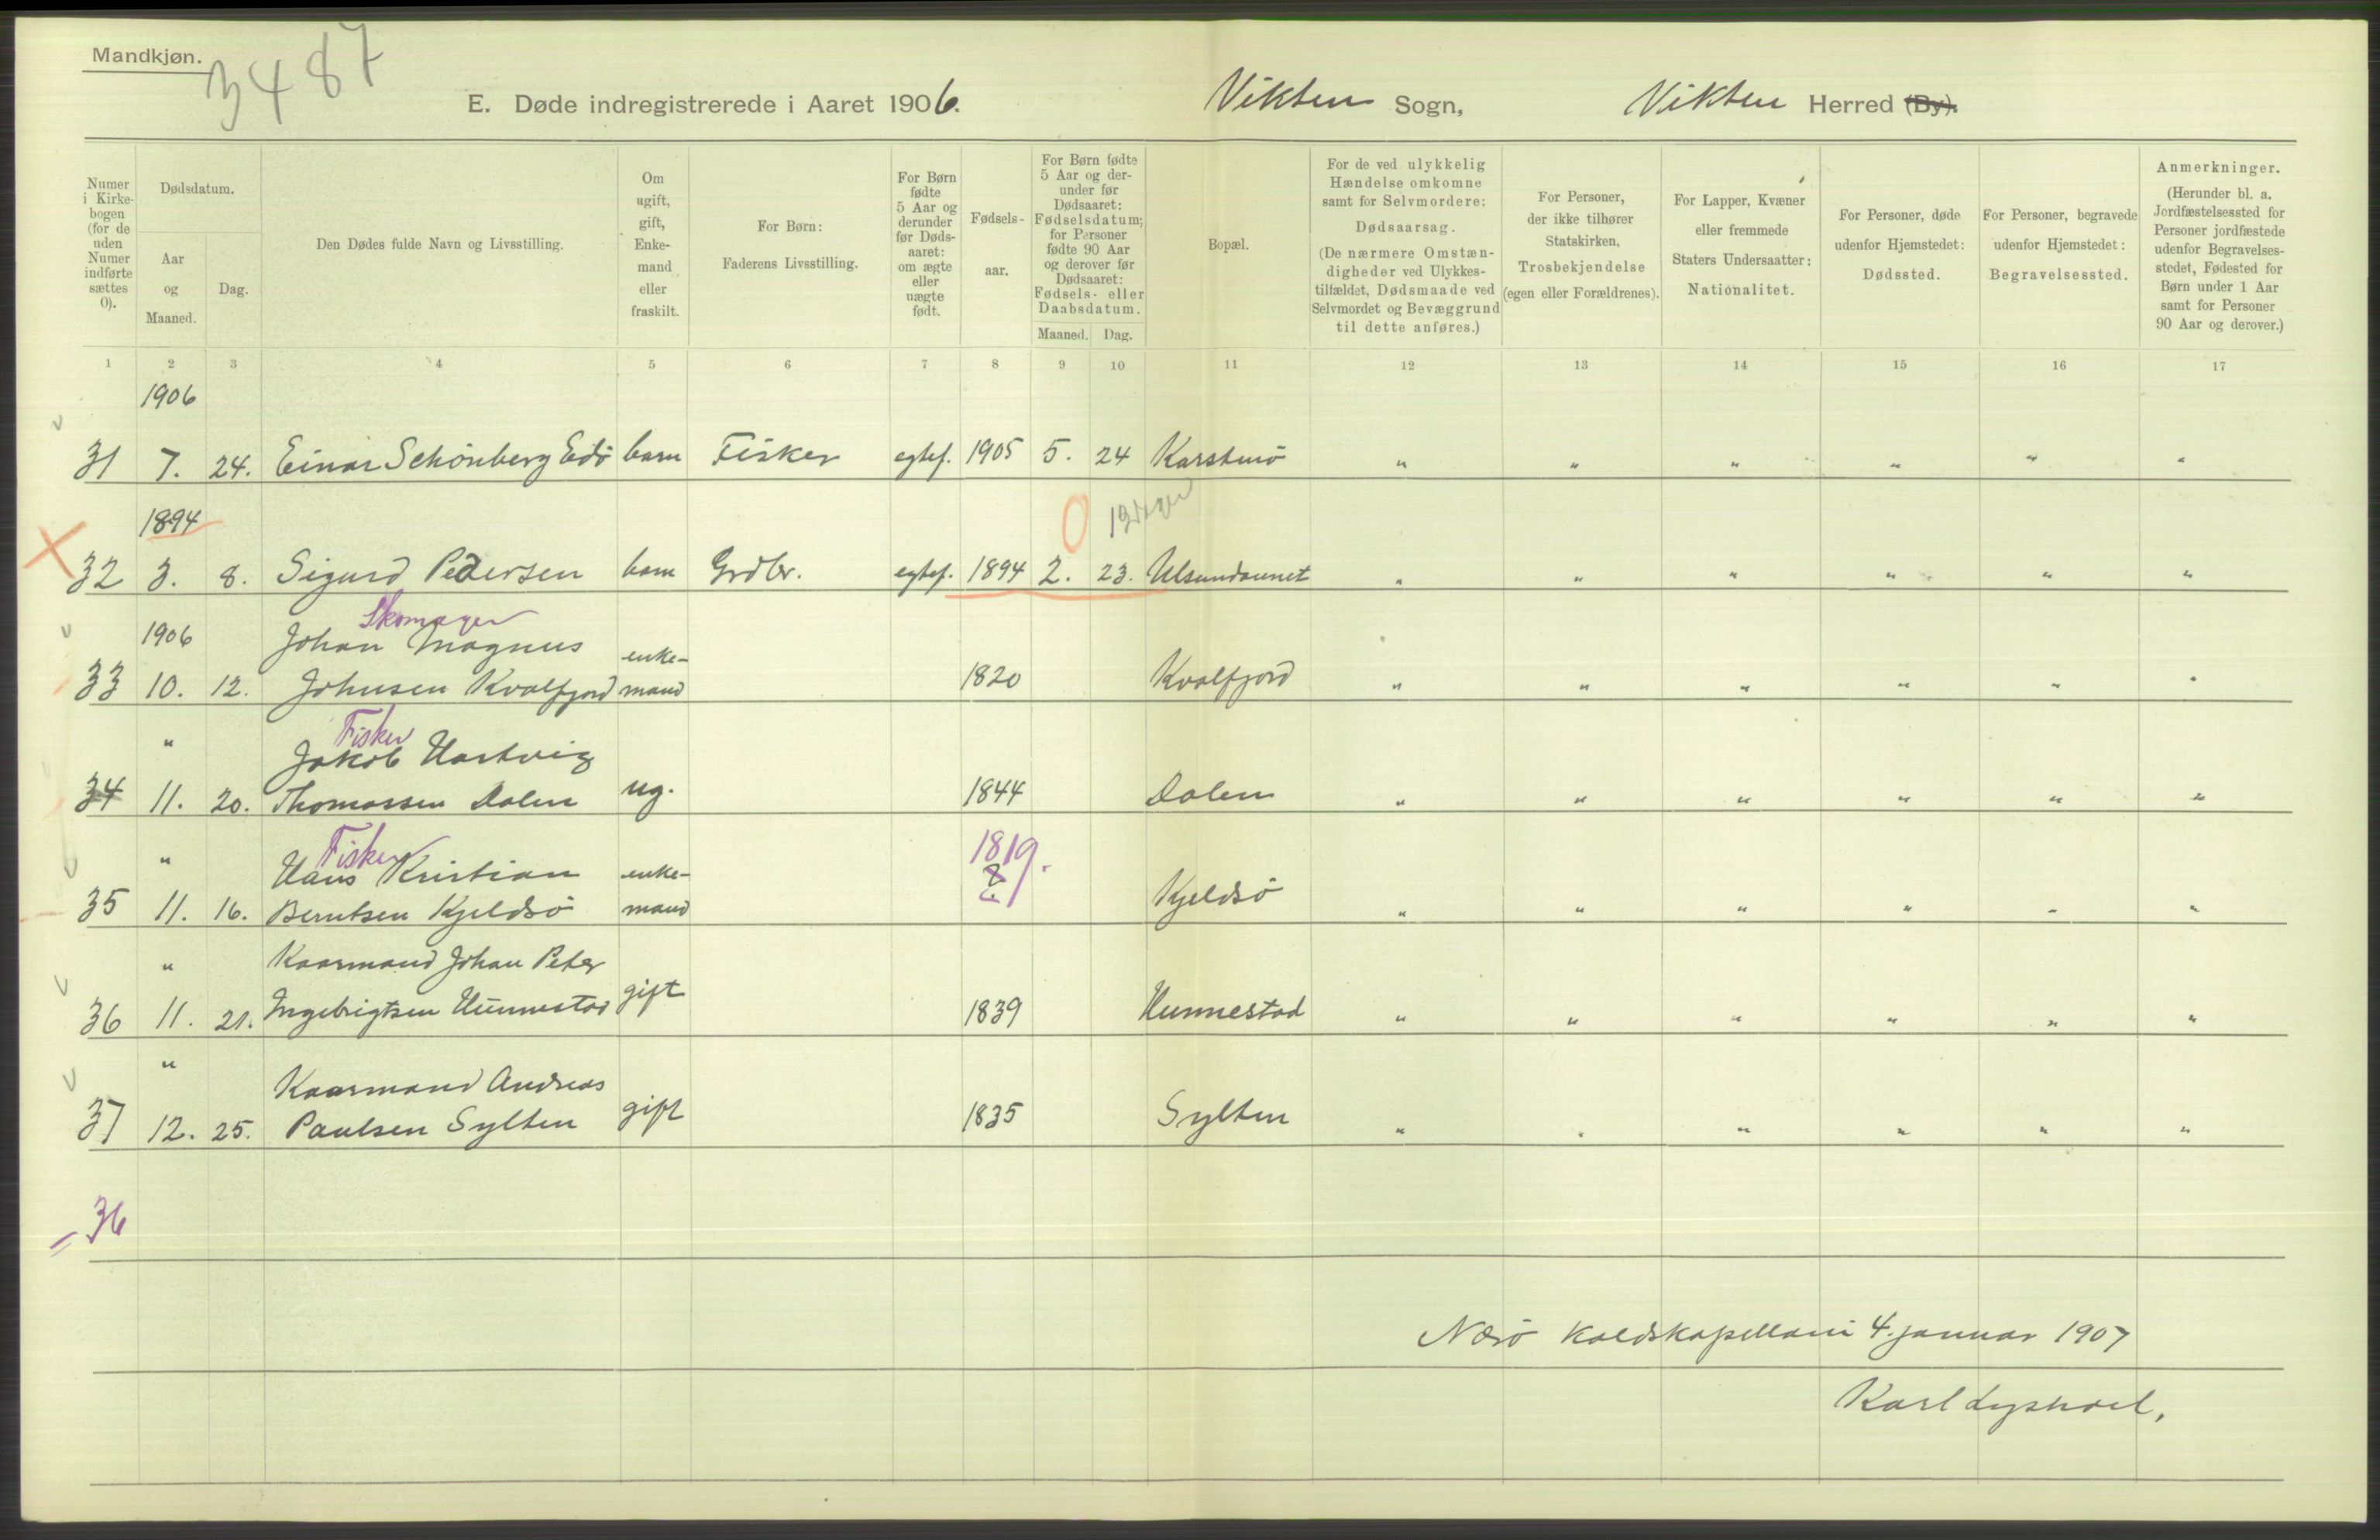 Mandkjøn.
3487
E. Døde indregistrerede i Aaret 1906.
Vikten Sogn,
Vikten Herred (By).
Numer i Kirkebogen (for de uden Numer indførte sættes 0).
Dødsdatum.
Aar og Maaned.
Dag.
Den Dødes fulde Navn og Livsstilling.
Om ugift, gift, Enkemand eller fraskilt.
For Børn: Faderens Livsstilling.
For Børn fødte 5 Aar og derunder før Dødsaaret: om ægte eller uægte født.
Fødselsaar.
For Børn fødte 5 Aar og derunder før Dødsaaret: Fødselsdatum; for Personer fødte 90 Aar og derover før Dødsaaret: Fødsels- eller Daabsdatum.
Maaned. Dag.
Bopæl.
For de ved ulykkelig Hændelse omkomne samt for Selvmordere: Dødsaarsag. (De nærmere Omstændigheder ved Ulykkestilfældet, Dødsmaade ved Selvmordet og Bevæggrund til dette anføres.)
For Personer, der ikke tilhører Statskirken, Trosbekjendelse (egen eller Forældrenes).
For Lapper, Kvæner eller fremmede Staters Undersaatter: Nationalitet.
For Personer, døde udenfor Hjemstedet: Dødssted.
For Personer, begravede udenfor Hjemstedet: Begravelsessted.
Anmerkninger. (Herunder bl. a. Jordfæstelsessted for Personer jordfæstede udenfor Begravelsesstedet, Fødested for Børn under 1 Aar samt for Personer 90 Aar og derover.)
1 2 3 4 5 6 7 8 9 10 11 12 13 14 15 16 17
1906
31 7. 24. Einar Schönberg Edö barn Fisker egtef. 1905 5. 24 Karstenö " " " " " "
1894
32 3. 8. Sigurd Pedersen barn Grdbr. egtef. 1894 2. 23. Ulsundaunet " " " " " "
Skomager
1906 Johan Magnus enke-
33 10. 12. Johnsen Kvalfjord mand 1820 Kvalfjord " " " " " "
Fisker
" Jakob Hartvig
34 11. 20. Thomassen Dalen ug. 1844 Dalen " " " " " "
Fisker 1819.
" Hans Kristian enke-
35 11. 16. Berntsen Kjeldsö mand Kjeldsö " " " " " "
" Kaarmand Johan Peter
36 11. 21. Ingebrigtsen Hunnestad gift 1839 Hunnestad " " " " " "
" Kaarmand Andreas
37 12. 25. Paulsen Sylten gift 1835 Sylten " " " " " "
= 36
Nærö Kaldskapellani 4. januar 1907
Karl Lyshoel.